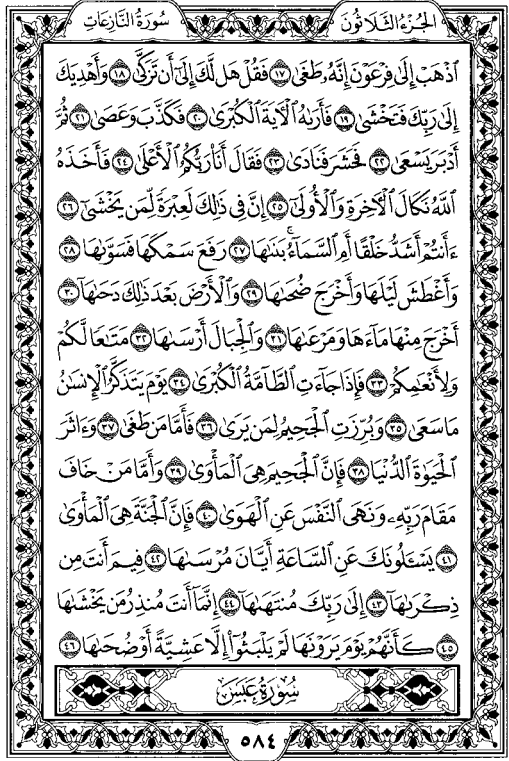 الجزء الثلاثون
سورة النازعات
ٱذْهَبْ إِلَىٰ فِرْعَوْنَ إِنَّهُۥ طَغَىٰ ١٧ فَقُلْ هَل لَّكَ إِلَىٰٓ أَن تَزَكَّىٰ ١٨ وَأَهْدِيَكَ
إِلَىٰ رَبِّكَ فَتَخْشَىٰ ١٩ فَأَرَىٰهُ ٱلْءَايَةَ ٱلْكُبْرَىٰ ٢٠ فَكَذَّبَ وَعَصَىٰ ٢١ ثُمَّ
أَدْبَرَ يَسْعَىٰ ٢٢ فَحَشَرَ فَنَادَىٰ ٢٣ فَقَالَ أَنَا۠ رَبُّكُمُ ٱلْأَعْلَىٰ ٢٤ فَأَخَذَهُ
ٱللَّهُ نَكَالَ ٱلْءَاخِرَةِ وَٱلْأُولَىٰٓ ٢٥ إِنَّ فِى ذَٰلِكَ لَعِبْرَةً لِّمَن يَخْشَىٰٓ ٢٦
ءَأَنتُمْ أَشَدُّ خَلْقًا أَمِ ٱلسَّمَآءُ ۚ بَنَىٰهَا ٢٧ رَفَعَ سَمْكَهَا فَسَوَّىٰهَا ٢٨
وَأَغْطَشَ لَيْلَهَا وَأَخْرَجَ ضُحَىٰهَا ٢٩ وَٱلْأَرْضَ بَعْدَ ذَٰلِكَ دَحَىٰهَآ ٣٠
أَخْرَجَ مِنْهَا مَآءَهَا وَمَرْعَىٰهَا ٣١ وَٱلْجِبَالَ أَرْسَىٰهَا ٣٢ مَتَٰعًا لَّكُمْ
وَلِأَنْعَٰمِكُمْ ٣٣ فَإِذَا جَآءَتِ ٱلطَّآمَّةُ ٱلْكُبْرَىٰ ٣٤ يَوْمَ يَتَذَكَّرُ ٱلْإِنسَٰنُ
مَا سَعَىٰ ٣٥ وَبُرِّزَتِ ٱلْجَحِيمُ لِمَن يَرَىٰ ٣٦ فَأَمَّا مَن طَغَىٰ ٣٧ وَءَاثَرَ
ٱلْحَيَوٰةَ ٱلدُّنْيَا ٣٨ فَإِنَّ ٱلْجَحِيمَ هِىَ ٱلْمَأْوَىٰ ٣٩ وَأَمَّا مَنْ خَافَ
مَقَامَ رَبِّهِۦ وَنَهَى ٱلنَّفْسَ عَنِ ٱلْهَوَىٰ ٤٠ فَإِنَّ ٱلْجَنَّةَ هِىَ ٱلْمَأْوَىٰ
٤١ يَسْـَٔلُونَكَ عَنِ ٱلسَّاعَةِ أَيَّانَ مُرْسَىٰهَا ٤٢ فِيمَ أَنتَ مِن
ذِكْرَىٰهَآ ٤٣ إِلَىٰ رَبِّكَ مُنتَهَىٰهَآ ٤٤ إِنَّمَآ أَنتَ مُنذِرُ مَن يَخْشَىٰهَا
٤٥ كَأَنَّهُمْ يَوْمَ يَرَوْنَهَا لَمْ يَلْبَثُوٓا۟ إِلَّا عَشِيَّةً أَوْ ضُحَىٰهَا ٤٦
سُورَةُ عَبَسَ
٥٨٤